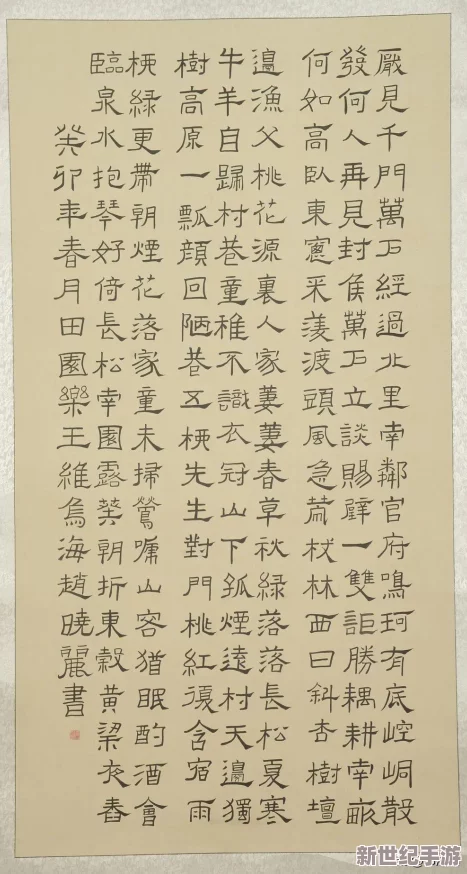 厥見千門萬戶經過北里南鄰官府鳴珂有底崆峒散
發何人再見封侯萬戶立談賜璧一雙詎勝耦耕南畝
何如高臥東窻采菱渡頭風急策杖林西日斜杏樹壇
邊漁父桃花源裏人家萋萋春草秋綠落落長松夏寒
牛羊自歸村巷童稚不識衣冠山下孤煙遠村天邊獨
樹高原一瓢顏回陋巷五柳先生對門桃紅復含宿雨
柳綠更帶朝煙花落家童未掃鶯啼山客猶眠酌酒會
臨泉水抱琴好倚長松南園露葵朝折東穀黃粱夜舂
癸卯年春月田園樂王維烏海趙曉麗書
新世纪手游